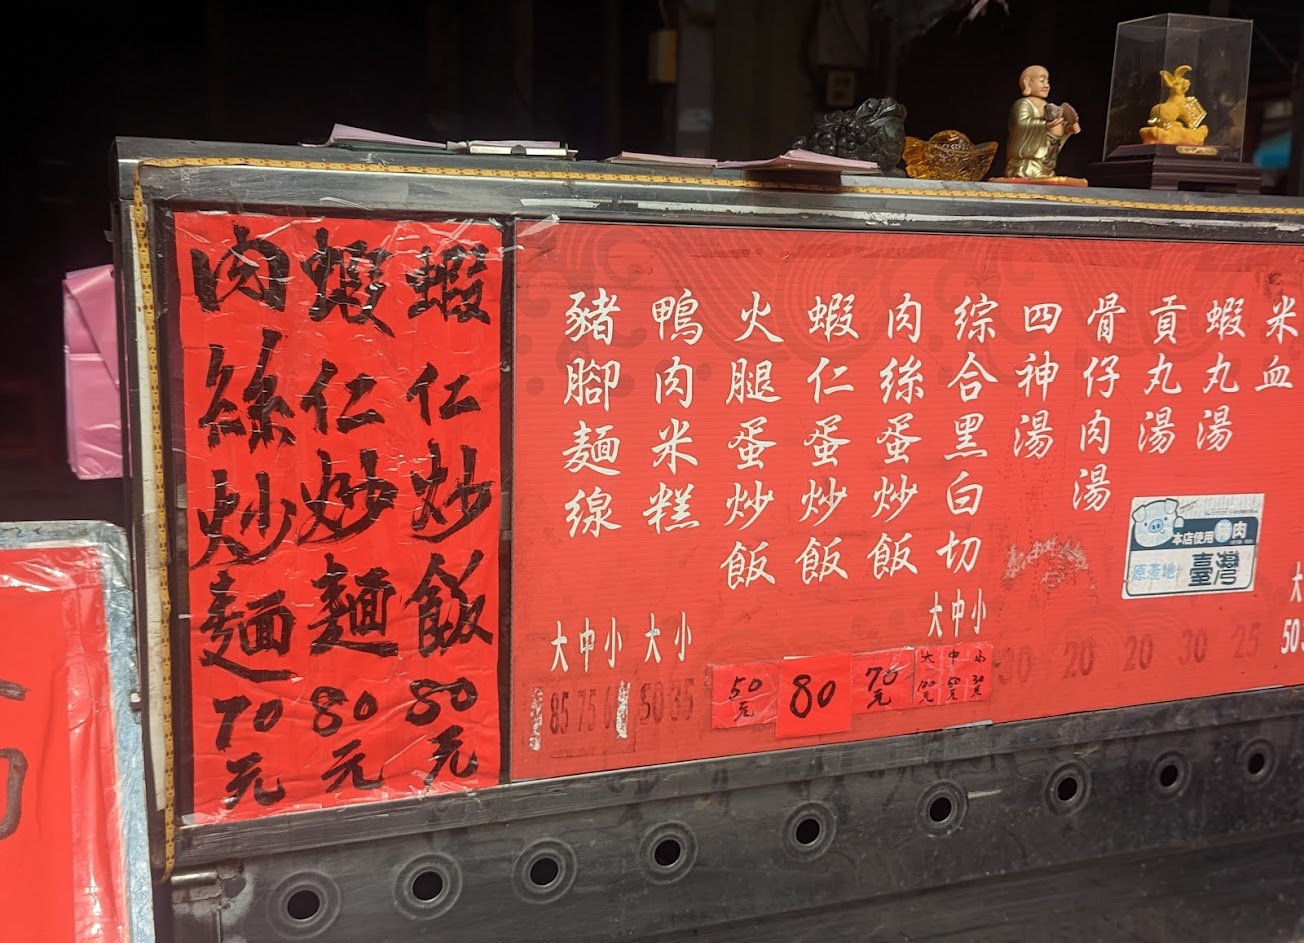 蝦仁炒飯 80元
蝦仁炒麵 80元
肉絲炒麵 70元
米血
蝦丸湯 30
貢丸湯 20
骨仔肉湯 20
四神湯 30
綜合黑白切 大中小
大100元 中50元 小30元
肉絲蛋炒飯 70元
蝦仁蛋炒飯 80
火腿蛋炒飯 50元
鴨肉米糕 大小 50 35
豬腳麵線 大中小 85 75
25
大
50
本店使用豬肉
原產地 臺灣